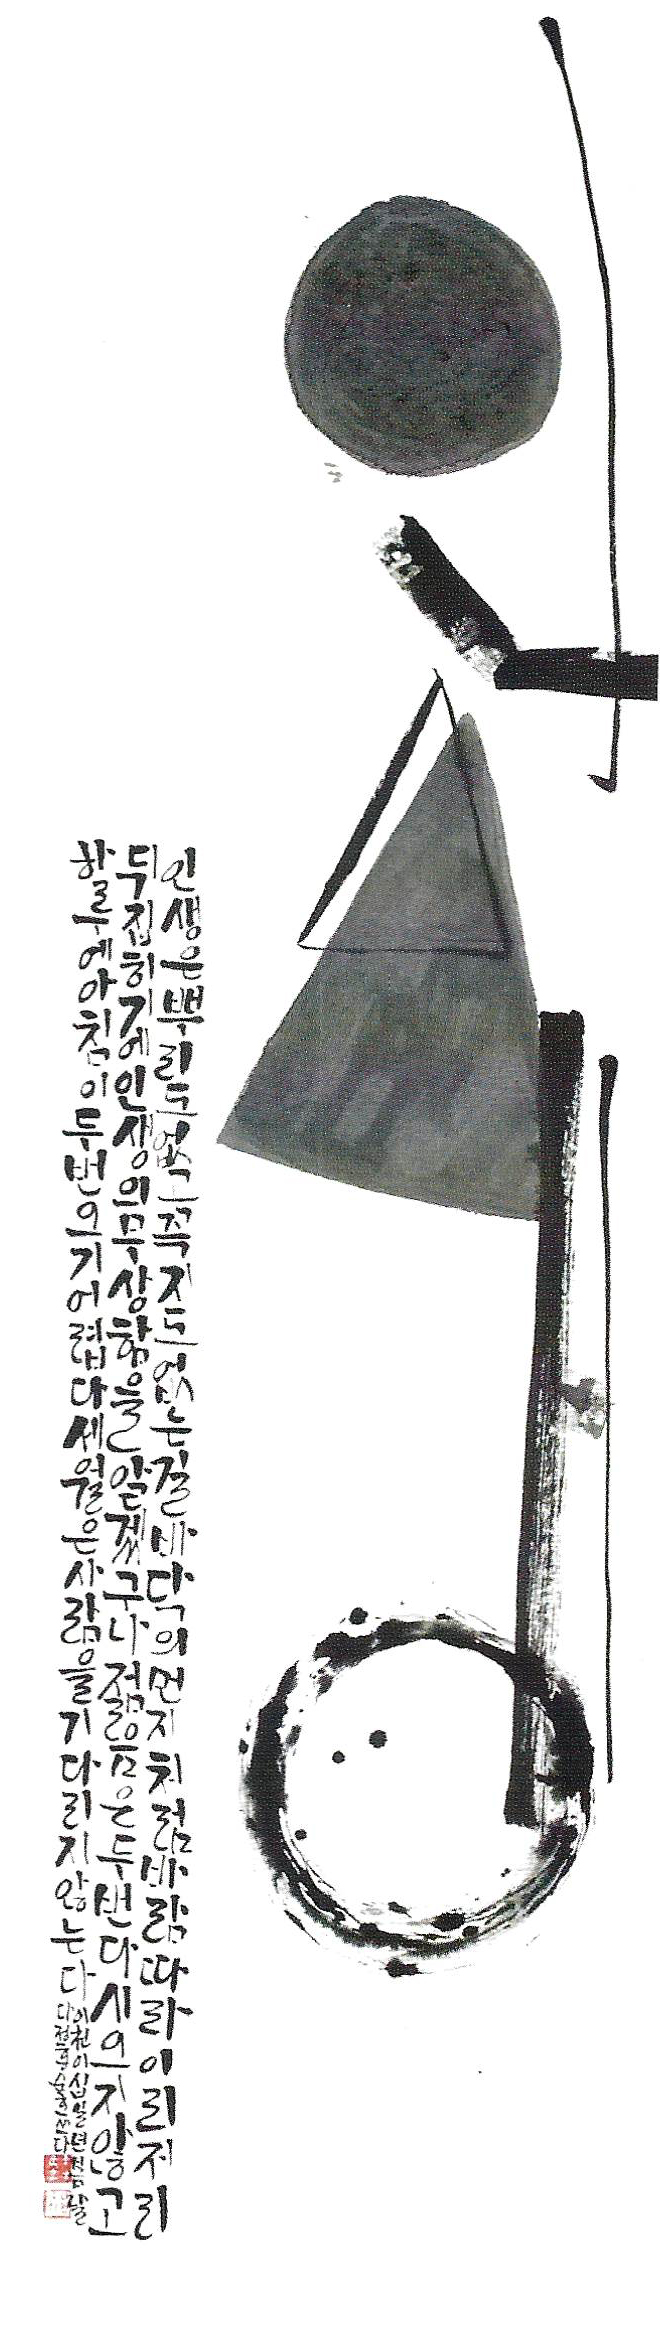 인생은뿌리도없고꼭지도없는길바닥의먼지처럼바람따라이리저리
뒤집히기에인생의무상함을알겠구나젊음은두번다시오지않고
하루에아침이두번오기어렵다세월은사람을기다리지않는다
이천이십일년섣달